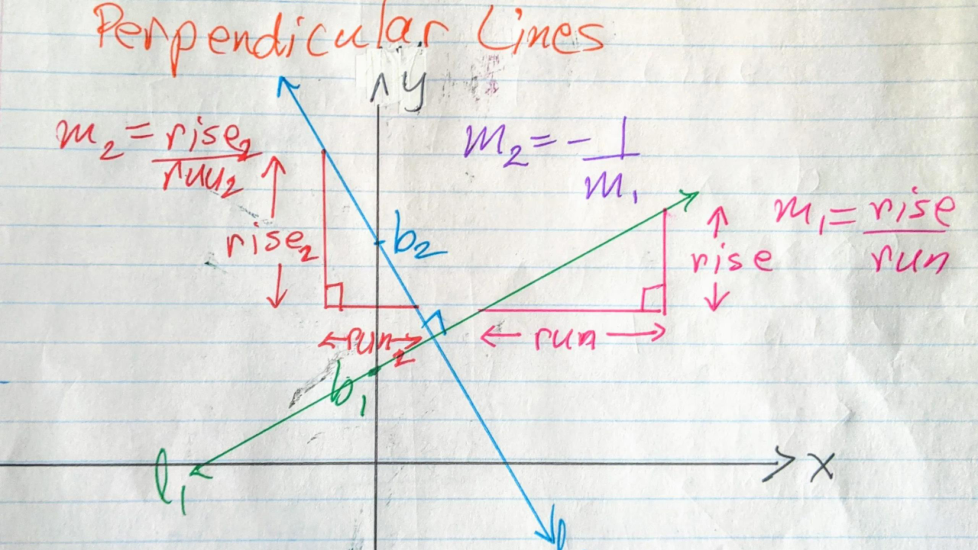 Perpendicular Lines
y
m₂ = rise₂/ruu₂
m₂ = - 1/m₁
m₁ = rise/run
rise₂
b₂
rise
run₂
run
b₁
x
l₁
l